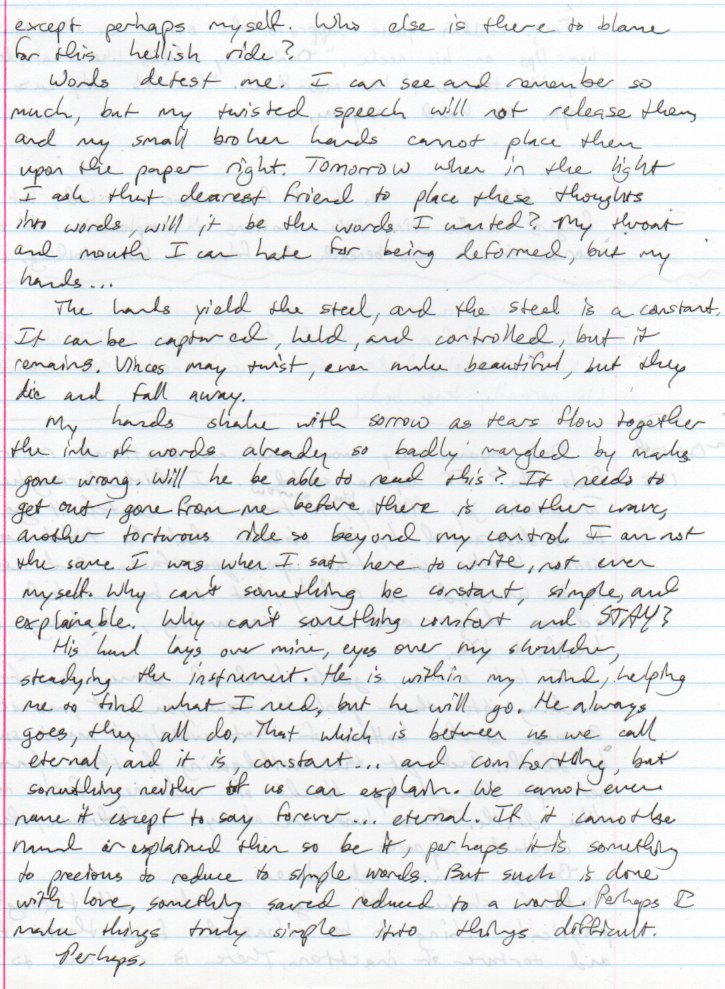 except perhaps myself. Who else is there to blame
for this hellish ride?
Words detest me. I can see and remember so
much, but my twisted speech will not release them,
and my small broken hands cannot place them
upon the paper right. Tomorrow when in the light
I ask that dearest friend to place these thoughts
into words, will it be the words I wanted? My throat
and mouth I can hate for being deformed, but my
hands...
The hands yield the steel, and the steel is a constant.
It can be captured, held, and controlled, but it
remains. Vinces may twist, even make beautiful, but they
die and fall away.
My hands shake with sorrow as tears flow together
the ink of words already so badly mangled by marks
gone wrong. Will he be able to read this? It needs to
get out, gone from me before there is another wave,
another torturous ride so beyond my control. I am not
the same I was when I sat here to write, not even
myself. Why can't something be constant, simple, and
explainable. Why can't something comfort and STAY?
His hand lays over mine, eyes over my shoulder,
steadying the instrument. He is within my mind, helping
me to find what I need, but he will go. He always
goes, they all do. That which is between us we call
eternal, and it is, constant... and comforting, but
something neither of us can explain. We cannot even
name it except to say forever... eternal. If it cannot be
named or explained then so be it, perhaps it is something
to precious to reduce to simple words. But such is done
with love, something saved reduced to a word. Perhaps I
make things truly simple into things difficult.
Perhaps.